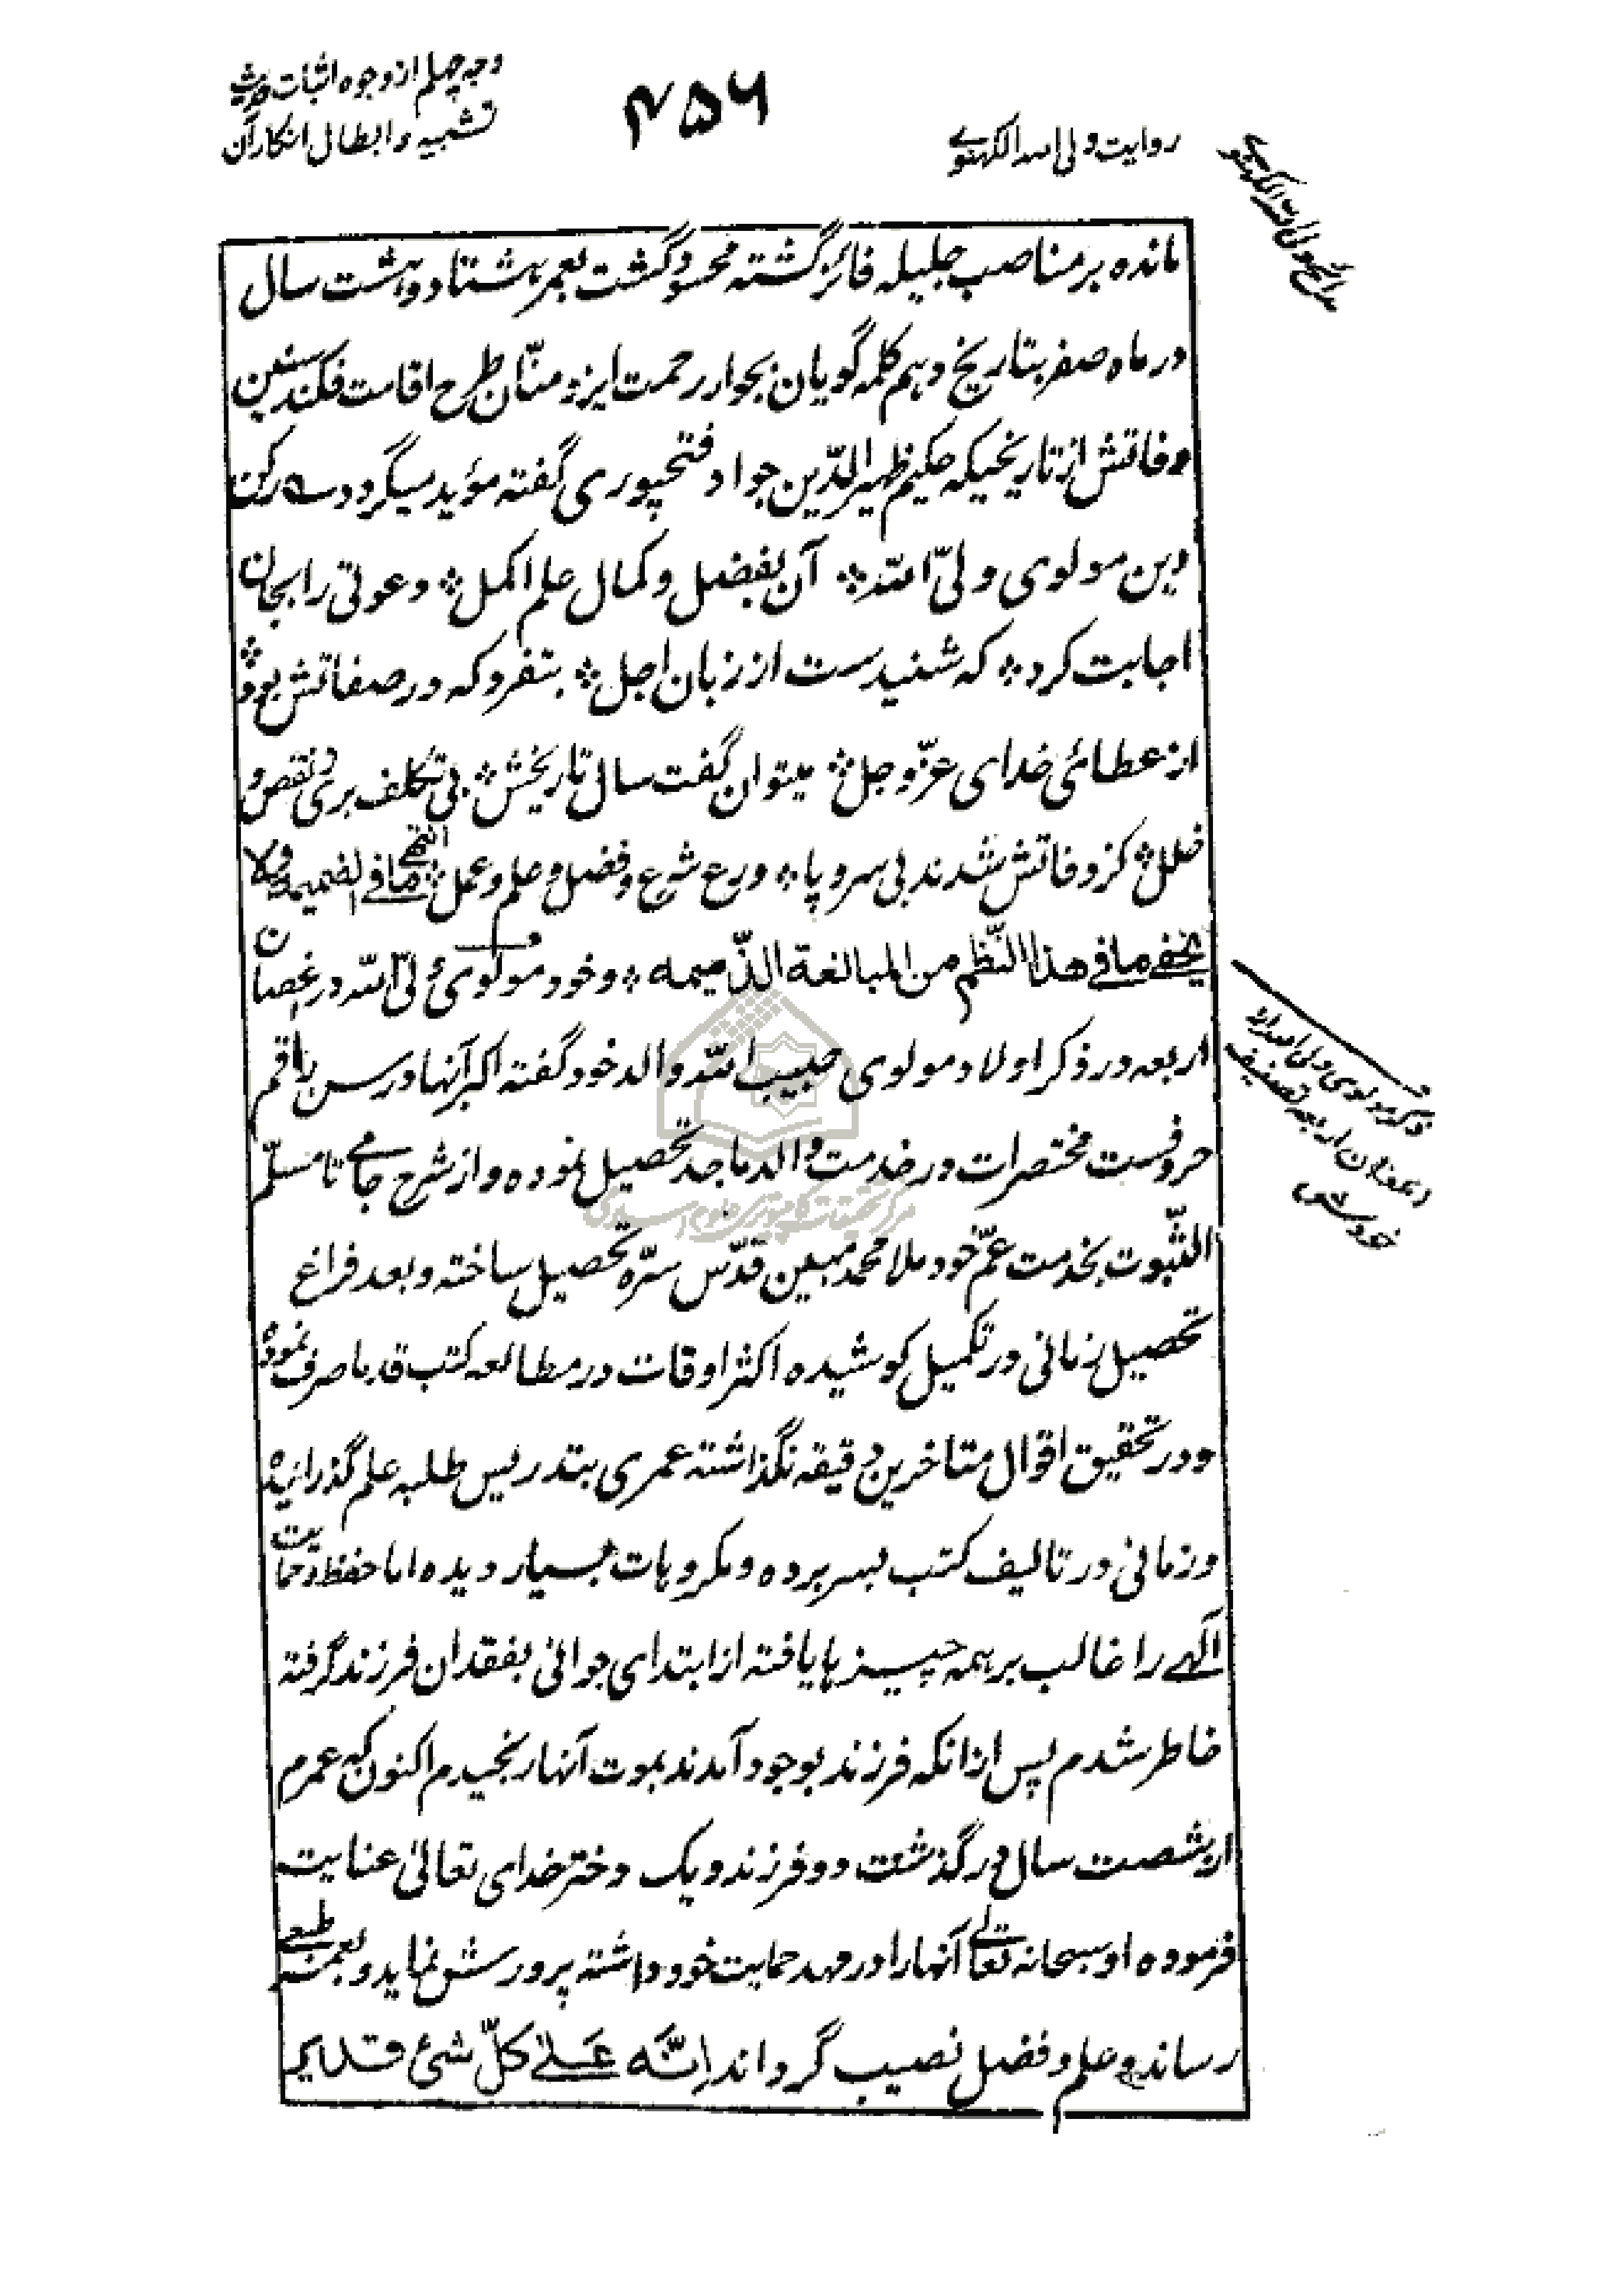 وجه چهلم از وجوه اثبات حدیث
تشبیه و ابطال انکار آن
۴۵۶
روایت ولی الله اللکهنوی
مانده بر مناصب جلیله فائز گشته محسود گشت بعمر هشتاد و هشت سال
در ماه صفر بتاریخ دهم کلمه گویان بجوار رحمت ایزد منّان طرح اقامت فکند سنین
وفاتش از تاریخیکه حکیم ظهیر الدّین جواد فتحپوری گفته مؤید میگردد ــه رکن
دین مولوی ولیّ اللّه ؞ آن بفضل و کمال علم اکمل ؞ دعوتی را بجان
اجابت کرد ؞ که شنیدست از زبان اجل ؞ بتفرد که در صفاتش بود ؞
از عطائی خدای عزّ و جل ؞ میتوان گفت سال تاریخش ؞ بی تکلف بری ز نقص و
خلل ؞ کز وفاتش شدند بی سر و پا ؞ ورع شرع و فضل و علم و عمل ؞ انتهی ما فی الضمیمة ولا
یخفی ما فی هذا النّظم من المبالغة الذّمیمه ؞ و خود مولوی ولیّ اللّه در اغصان
اربعه در ذکر اولاد مولوی حبیب اللّه والد خود گفته اکبر آنها در سن راقم
حروفست مختصرات در خدمت والد ماجد تحصیل نموده و از شرح جامی تا مسلّم
الثّبوت بخدمت عمّ خود ملا محمد مبین قدّس سرّه تحصیل ساخته و بعد فراغ
تحصیل زمانی در تکمیل کوشیده اکثر اوقات در مطالعه کتب قدما صرف نموده
و در تحقیق اقوال متاخرین دقیقه نگذاشته عمری بتدریس طلبه علم گذرانیده
و زمانی در تالیف کتب بسر برده و مکروهات بسیار دیده اما حفظ و حمایت
الهی را غالب بر همه چیزها یافته از ابتدای جوانی بفقدان فرزند گرفته
خاطر شدم پس ازانکه فرزند بوجود آمدند بموت آنها رنجیدم اکنون که عمرم
از شصت سال در گذشت دو فرزند و یک دختر خدای تعالی عنایت
فرموده او سبحانه تعالی آنها را در مهد حمایت خود داشته پرورش نماید و بعمر طبعی
رساند و علم و فضل نصیب گرداند اِنَّه عَلی کلّ شئ قدیر
ذکر مولوی ولی الله در
اغصان اربعه تصنیف
خودش
مرکز تحقیقات کامپیوتری علوم اسلامی